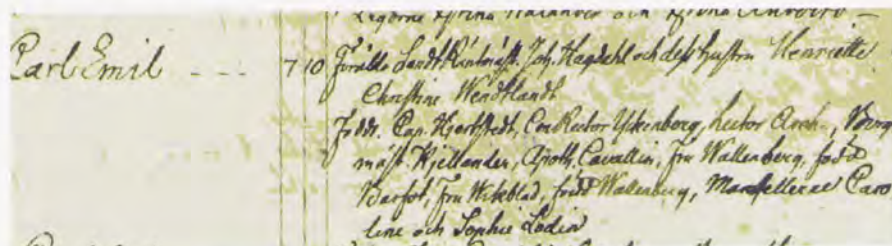 Carl Emil - - - 7 10 Föräldr. Landt Räntmäst. Joh. Hagdahl och dess hustru Henriette
Christine Wendtlandt
Faddr. Cap. Hjortstedt, ConRector Yckenberg, Lector
mäst. Kjellander, Apoth. Cavallin, Fru Wallenberg, född
Barfot, Fru Wikblad, född Wallenberg, Mamsellerne Caro
line och Sophie Lodin